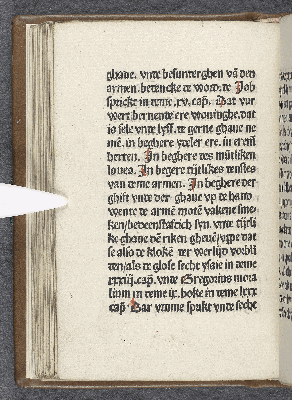 ghaue. vnte besunterghen vā den
armen. betencke te word. te Job
sprickt in teme .xv. cap. Dat vur
vert bernente ere woninghe. dat
is sele vnte lyff. te gerne ghaue ne
mē. in beghere ydeler ere. in erem
herten. In beghere des mūtliken
loues. In begere tijtlikes tenstes
van teme armen. In beghere der
ghift vnte der ghaue vp te hant
wente te arme mote vakene sme
ken/ deenstaftich syn. vnte tijtli
ke ghaue dē riken gheuē/vppe dat
se also te kloke ter werlijd vorbli
ten/als te glose secht ysaie in teme
xxxiij. cap. vnte Gregorius mora
lium in teme ix. boke in teme lxxx
cap. Dar vmme sprikt vnte secht